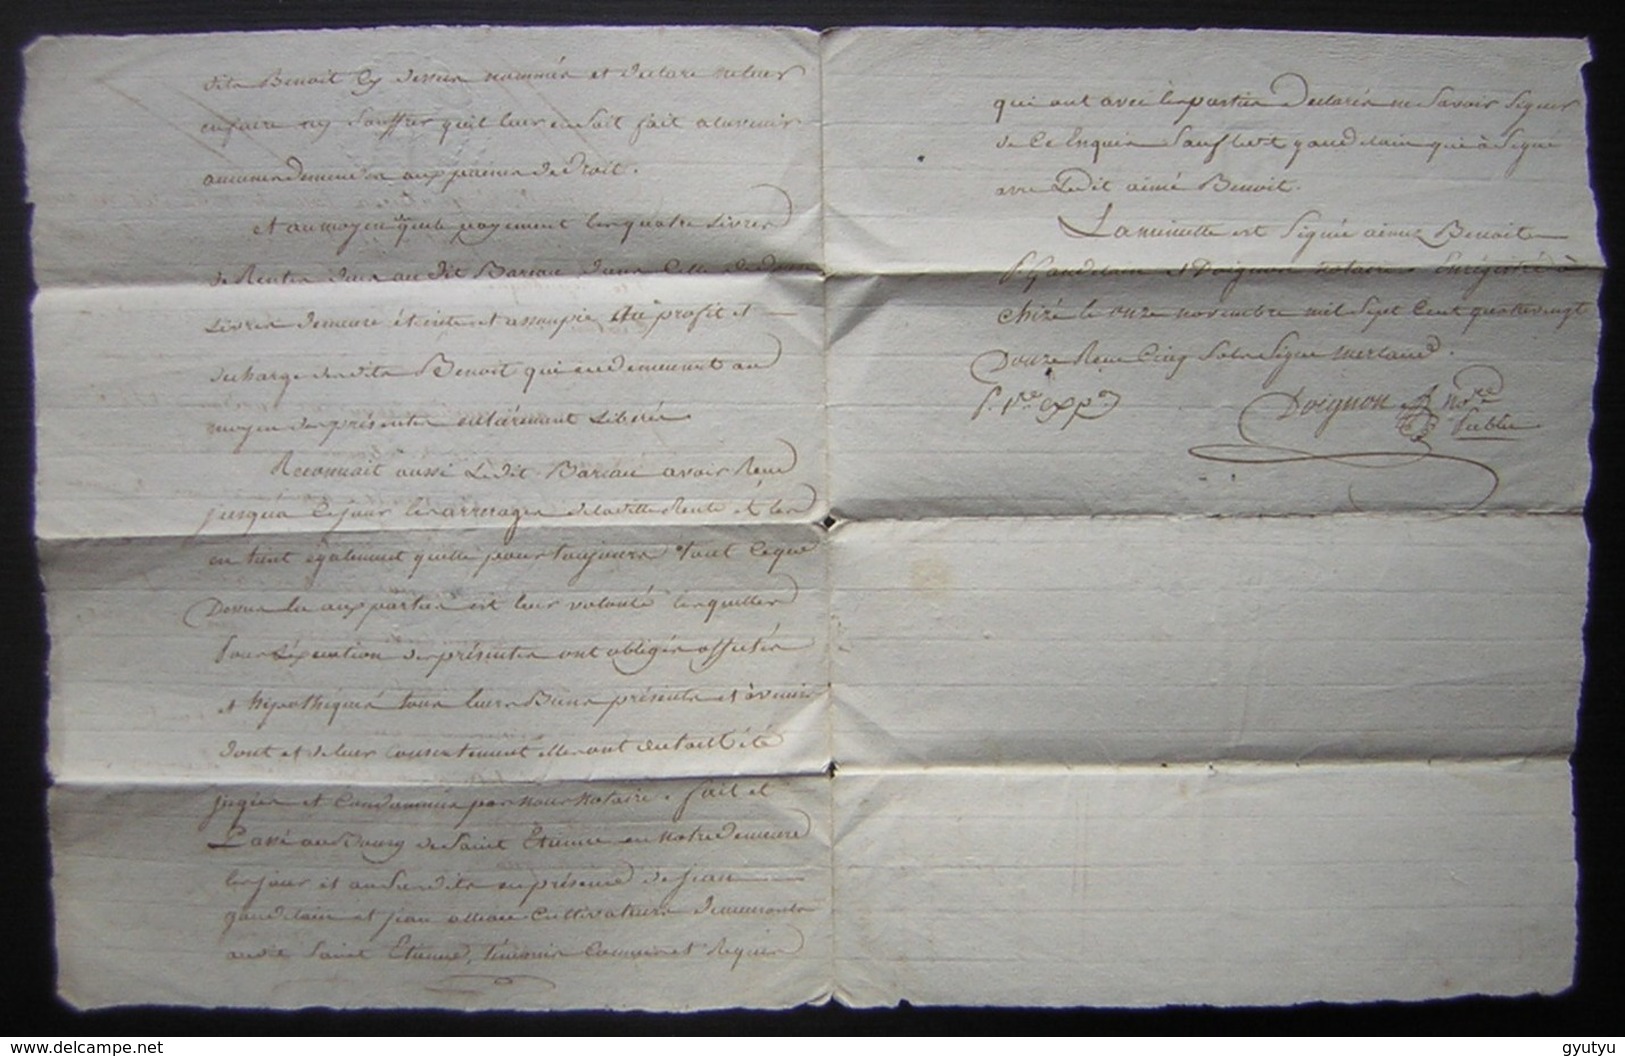 dits Benoit cy dessus nommés et declare ne leur
en faire ny souffrir quil leur en soit fait a lavenir
aucunes demendes aux peines de droit.
et au moyen que le payement les quatre livres
de Rentes dues au dit Bareau dans celle de douze
Livres demeure éteintes et assoupie au profit et
decharge desdits Benoit qui en demeurent au
moyen des présentes entièrement Libérés
Reconnait aussi Ledit Bareau avoir Reçu
jusquà ce jour les arrerages de laditte Rente et les
en tient également quitte pour toujours tout ce que
Dessus lu aux parties est leur volonté lesquelles
Pour Léxécution des présentes ont obligés affectés
et hipothéqués tous leurs Biens présents et à venir
dont et de leur consentement elles ont du tout été
jugées et Condamnées par nous notaire fait et
Passé au Bourg de Saint Etienne en notre demeure
les jour et an susdits en présence de jean
gaudelain et jean cultivateurs demeurants
audit Saint Etienne, témoins Connus et Requis
qui ont avec les parties Declarés ne Savoir Signer
de Ce Enquis Sauf ledit gaudelain qui à Signé
avec Ledit aimé Benoit.
La minutte est Signée aimé Benoit
P. Gaudelain et Doignon notaire. Enrégistré à
Chizé le onze novembre mil Sept Cent quatrevingt
Douze Reçu Cinq Sols Signé merland.
P. 1re expon
Doignon nore
Public
gyutyu